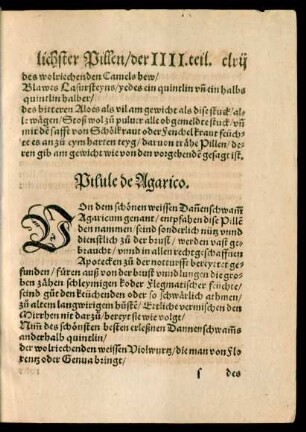 lichster Pillen/der IIII.teil. clvij
des wolriechenden Camels hew/
Blawes Lasursteyns/yedes ein quintlin vñ ein halbs
quintlin halber/
des bitteren Aloes als vil am gewicht als dise stuck/al-
le wägen/Stoß wol zů puluer alle obgemeldte stuck/vñ
mit dē safft von Schölkraut oder Fenchelkraut feüch-
te es an zů eym harten teyg/darnonträhe Pillen/de-
ren gib am gewicht wie von den vorgehendē gesagt ist.
Pilule de Agarico.
VOn dem schönen weissen Dañenschwam̃
Agaricum genant/entpfahen dise Pillē
den nammen/seind sonderlich nütz vnd
dienstlich zů der brust/werden vast ge-
braucht/vnnd in allen rechtgeschaffnen
Apotecken zů der notturfft bereytet ge-
funden/füren auß von der brust vnnd lungen die gro-
ben zähen schleymigen koder Flegmatischer feüchte/
seind gůt den keichenden oder so schwärlich athmen/
zů altem langwirigen hůstē/Etliche vermischen den
Mirrhen nit darzů/bereyt sie wie volgt/
Nim̃ des schönsten besten erleßnen Dannenschwam̃s
anderhalb quintlin/
der wolriechenden weissen Violwurtz/die man von Flo
rentz oder Genua bringt/
s des